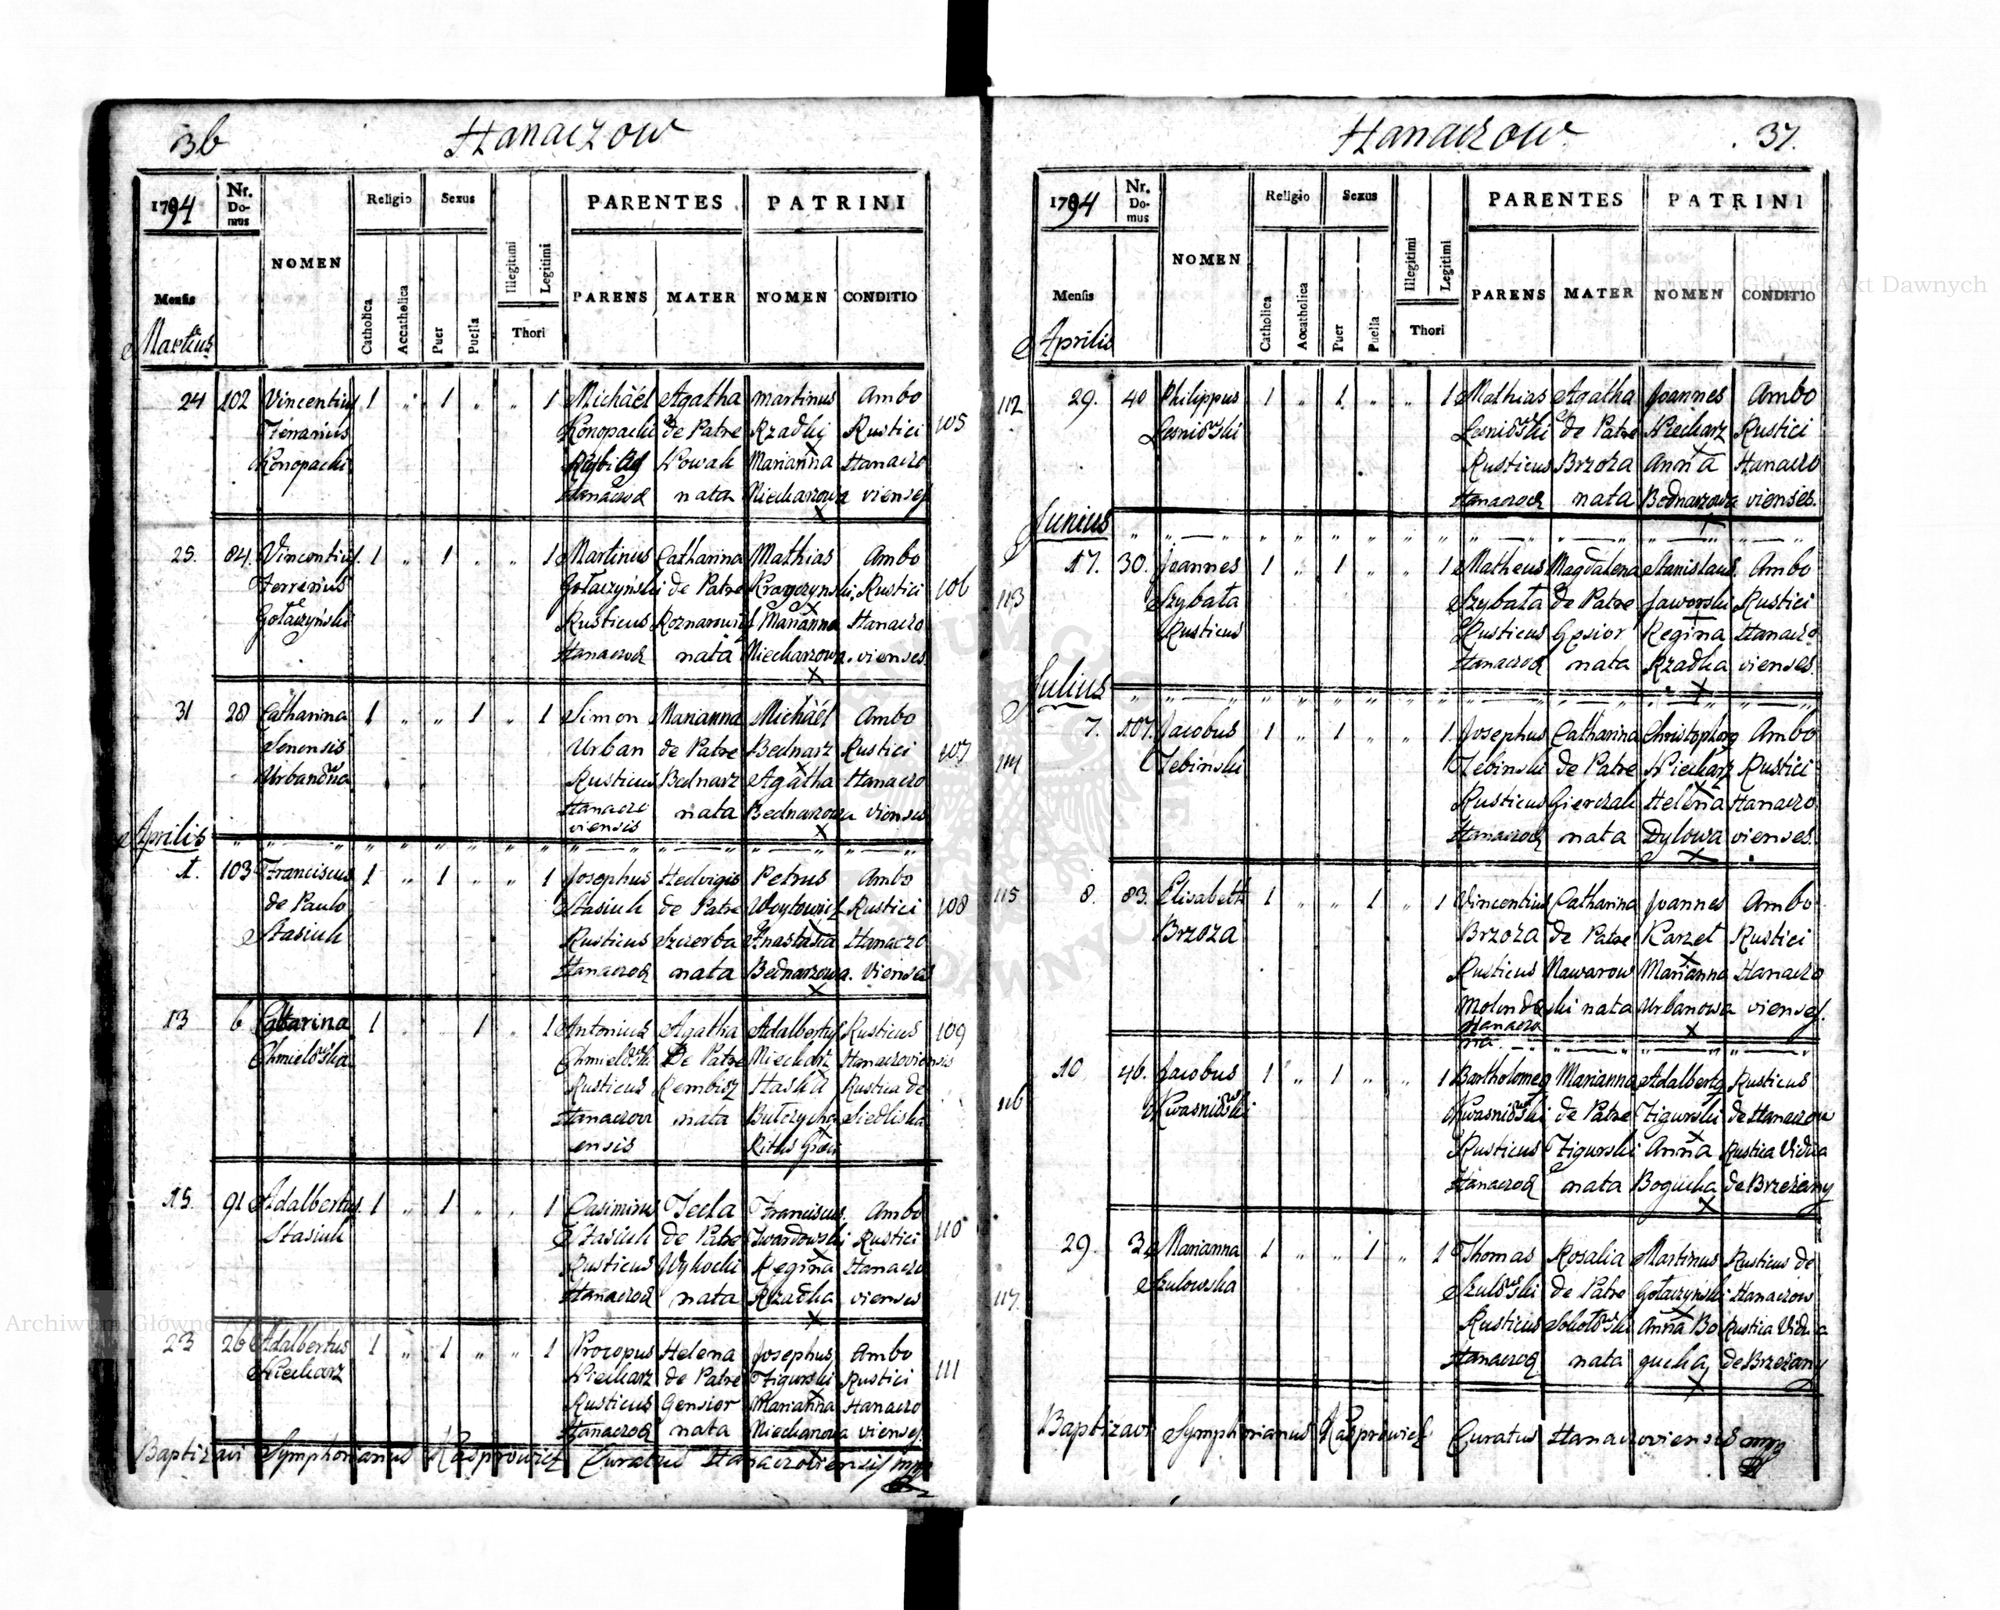 36
Hanaczow
1794
Nr. Do-mus
NOMEN
Religio
Sexus
PARENTES
PATRINI
Mensis
Catholica
Accatholica
Puer
Puella
Illegitimi
Legitimi
Thori
PARENS
MATER
NOMEN
CONDITIO
Martius
24 102 Vincentius 1 " 1 " " 1 Michaël Agatha Martinus Ambo
Ferrarius Konopacki de Patre Rzadki Rustici 105
Konopacki Nowak Marianna Hanaczo
Hanaczov nata Niecharzowa vienses
25. 84. Vincentius 1 " 1 " " 1 Martinus Catharina Mathias Ambo
Ferrerius Gołaczyński de Patre Rustici 106
Gołaczyński Rusticus Marianna Hanaczo
Hanaczov nata Niecharzowa vienses
31 28 Catharina 1 " " 1 " 1 Simon Marianna Michaël Ambo
Senensis Urban de Patre Bednarz Rustici 107
Urbanowna Rusticus Bednarz Agatha Hanaczo
Hanaczo nata Bednarzowa vienses
viensis
Aprilis
1. 103 Franciscus 1 " 1 " " 1 Josephus Hedvigis Petrus Ambo
de Paulo Stasiuk de Patre Woytowicz Rustici 108
Stasiuk Rusticus Szczerba Anastasia Hanaczo
Hanaczov nata Bednarzowa vienses
13 6 Catharina 1 1 1 Antonius Agatha Adalbertus Rusticus 109
Chmielowska Chmielowski De Patre Niecharz Hanaczoviensis
Rusticus Rembisz Haska Rustica de
Hanaczovi nata Siedliska
ensis Ritus Graeci
15. 91 Adalbertus 1 " 1 " " 1 Casimirus Tecla Franciscus Ambo
Stasiuk Stasiuk de Patre Twardowski Rustici 110
Rusticus Wysocki Regina Hanaczo
Hanaczov nata Rzadka vienses
23 26 Adalbertus 1 " 1 " " 1 Procopus Helena Josephus Ambo
Niecharz Niecharz de Patre Figurski Rustici 111
Rusticus Gensior Marianna Hanaczo
Hanaczov nata Niecharzowa vienses
Baptizavi Symphorianus Kasprowicz Curatus Hanaczoviensis mpp
Hanaczow 37.
1794
Nr. Do-mus
NOMEN
Religio
Sexus
PARENTES
PATRINI
Mensis
Catholica
Accatholica
Puer
Puella
Illegitimi
Legitimi
Thori
PARENS
MATER
NOMEN
CONDITIO
Aprilis
112 29. 40 Philippus 1 " 1 " " 1 Mathias Agatha Joannes Ambo
Lesniowski Lesniowski de Patre Niecharz Rustici
Rusticus Brzoza Anna Hanaczo
Hanaczov nata Bednarzowa vienses.
Junius
17. 30. Joannes 1 " 1 " " 1 Matheus Magdalena Stanislaus Ambo
113 Szybała Szybała de Patre Jaworski Rustici
Rusticus Rusticus Gęsior Regina Hanaczo
Hanaczov nata Rzadka vienses.
Julius
7. 107. Jacobus 1 " 1 " " 1 Josephus Catharina Christophorus Ambo
114 Zebinski Zebinski de Patre Niecharz Rustici
Rusticus Gierczak Helena Hanaczo
Hanaczov nata Dylowa vienses.
115 8. 83. Elisabeth 1 " " 1 " 1 Vincentius Catharina Joannes Ambo
Brzoza Brzoza de Patre Karzet Rustici
Rusticus Nawarow Marianna Hanaczo
ski nata Urbanowa vienses.
10 46. Jacobus 1 " 1 " " 1 Bartholomeus Marianna Adalbertus Rusticus
116 Kwasniowski Kwasniowski de Patre Figurski de Hanaczow
Rusticus Figurski Anna Rustica Vidua
Hanaczov nata Bogucka de Brzeżany
29. Marianna 1 " " 1 " 1 Thomas Rosalia Martinus Rusticus de
Szulowska Szulowski de Patre Gołaczyński Hanaczow
117. Rusticus Sokołowski Anna Bo Rustica Vidua
Hanaczov nata gucka de Brzeżany
Baptizavi Symphorianus Kasprowicz Curatus Hanaczoviensis mpp
Archiwum Główne Akt Dawnych
Archiwum Główne Akt Dawnych